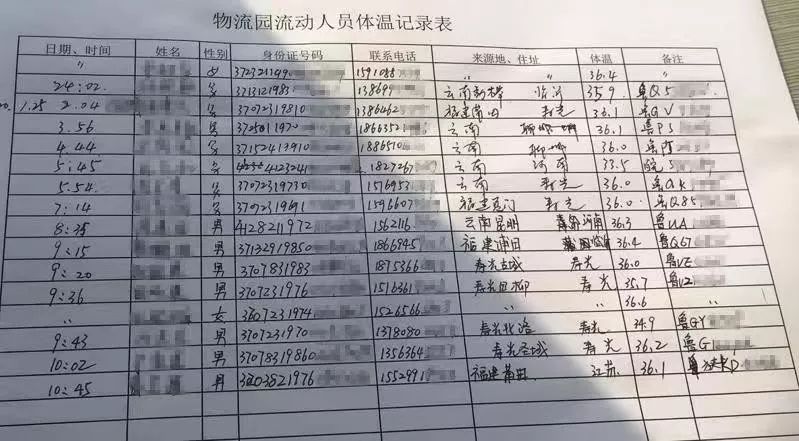 物流园流动人员体温记录表
日期、时间 姓名 性别 身份证号码 联系电话 来源地、住址 体温 备注
女 372321190 1591088 〃 〃 36.4 〃
24:02 女 3713121983 138697 云南 临沂 35.9 鲁Q5
1.25 2.04 男 37072319810 1386462 福建莆田 寿光 36.1 鲁GV
3.56 男 1866352 云南 聊城 36.1 鲁PS
4.44 男 37152412910 1886510 云南 聊城 36.0 鲁
5:45 男 182726 云南 河南 33.5 皖S
5.54 男 37072319730 1576953 云南 寿光 36.0 鲁
7:14 男 1596607 福建厦门 寿光 36.0 鲁Q85
8:35 男 4128211972 1562116 云南昆明 河南 36.3 鲁UA
9:15 男 37132919850 1866945 福建莆田 36.4 鲁Q67
9:20 男 3707831983 1875366 寿光古城 寿光 36.0 鲁VE
9:36 男 3707231976 1516361 寿光田柳 寿光 35.7 鲁VZ
〃 女 3807231974 1526566 〃 36.6 〃
9:43 男 3707231970 1378080 寿光北洛 寿光 34.9 鲁GY
10:02 男 37078319860 1356364 寿光圣城 寿光 36.2 鲁G1
10:45 男 3203821976 1552991 福建莆田 江苏 36.1 鲁